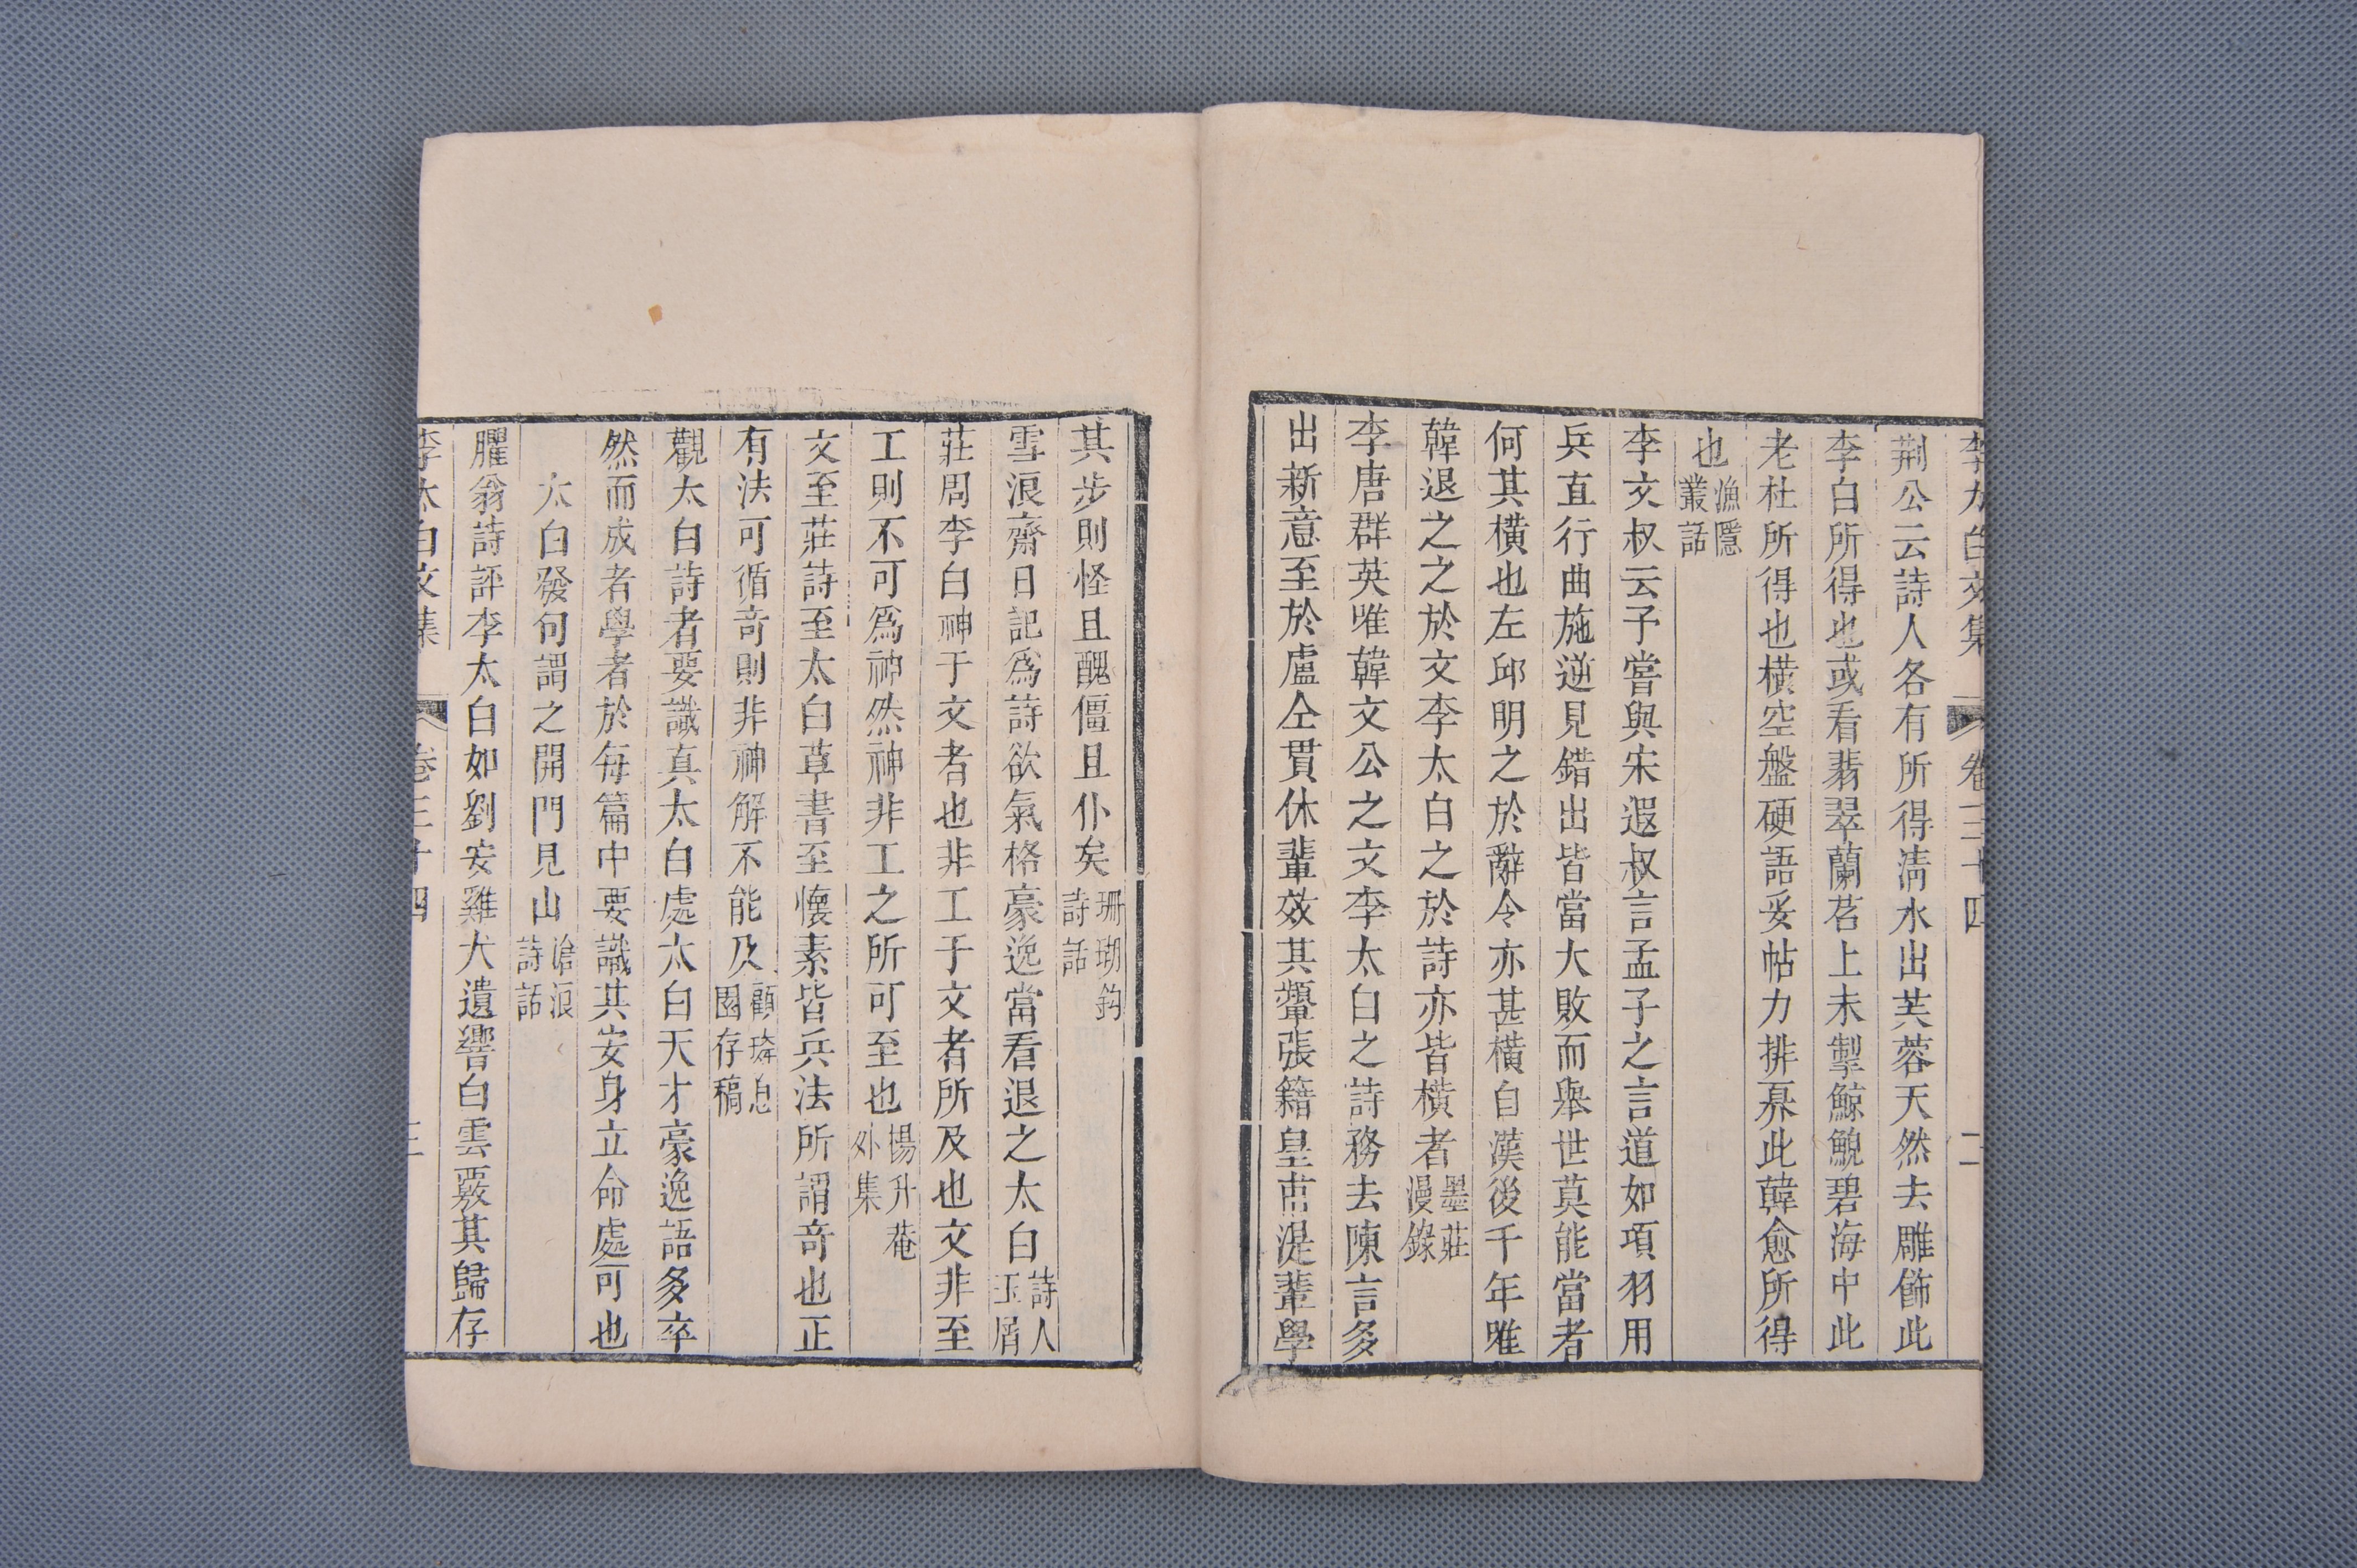 李太白文集 卷三十四 二
荆公云詩人各有所得清水出芙蓉天然去雕飾此
李白所得也或看翡翠蘭苕上未掣鯨鯢碧海中此
老杜所得也橫空盤硬語妥帖力排奡此韓愈所得
也漁隱叢話
李文叔云予嘗與宋遐叔言孟子之言道如項羽用
兵直行曲施逆見錯出皆當大敗而舉世莫能當者
何其橫也左邱明之於辭令亦甚橫自漢後千年唯
韓退之之於文李太白之於詩亦皆橫者墨莊漫錄
李唐群英唯韓文公之文李太白之詩務去陳言多
出新意至於盧仝貫休輩效其顰張籍皇甫湜輩學
其步則怪且醜僵且仆矣珊瑚鈎詩話
雪浪齋日記爲詩欲氣格豪逸當看退之太白詩人玉屑
莊周李白神于文者也非工于文者所及也文非至
工則不可爲神然神非工之所可至也楊升菴外集
文至莊詩至太白草書至懷素皆兵法所謂奇也正
有法可循奇則非神解不能及顧璘息園存稿
觀太白詩者要識真太白處太白天才豪逸語多卒
然而成者學者於每篇中要識其安身立命處可也
太白發句謂之開門見山滄浪詩話
臞翁詩評李太白如劉安雞犬遺響白雲覈其歸存
李太白文集 卷三十四 三